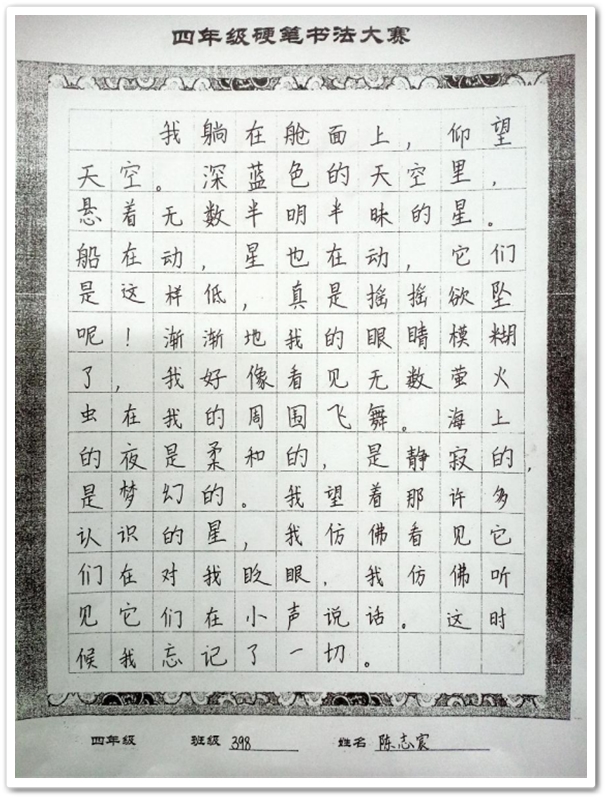 四年级硬笔书法大赛
我躺在舱面上，仰望
天空。深蓝色的天空里，
悬着无数半明半昧的星。
船在动，星也在动，它们
是这样低，真是摇摇欲坠
呢！渐渐地我的眼睛模糊
了，我好像看见无数萤火
虫在我的周围飞舞。海上
的夜是柔和的，是静寂的，
是梦幻的。我望着那许多
认识的星，我仿佛看见它
们在对我眨眼，我仿佛听
见它们在小声说话。这时
候我忘记了一切。
四年级 班级 398 姓名 陈志宸